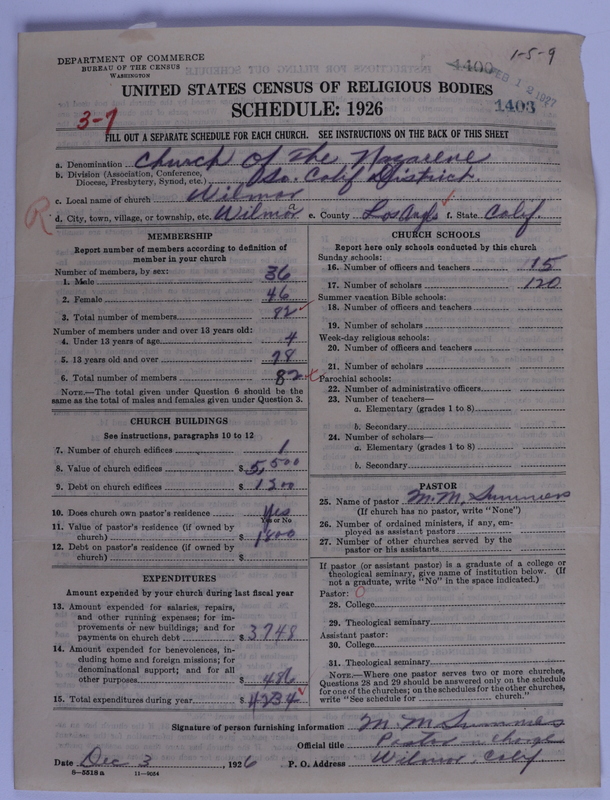 1-5-9
DEPARTMENT OF COMMERCE
BUREAU OF THE CENSUS
WASHINGTON
1400 FEB 12 1927
UNITED STATES CENSUS OF RELIGIOUS BODIES
SCHEDULE: 1926
1403
3-7
FILL OUT A SEPARATE SCHEDULE FOR EACH CHURCH. SEE INSTRUCTIONS ON THE BACK OF THIS SHEET
a. Denomination Church Of The Nazarene
b. Division (Association, Conference, Diocese, Presbytery, Synod, etc.) So. Calif District.
c. Local name of church Wilmar
R d. City, town, village, or township, etc. Wilmar e. County Los Angls f. State Calif.
MEMBERSHIP
Report number of members according to definition of
member in your church
Number of members, by sex:
1. Male 36
2. Female 46
3. Total number of members 82
Number of members under and over 13 years old:
4. Under 13 years of age 4
5. 13 years old and over 78
6. Total number of members 82
NOTE.—The total given under Question 6 should be the
same as the total of males and females given under Question 3.
CHURCH BUILDINGS
See instructions, paragraphs 10 to 12
7. Number of church edifices 1
8. Value of church edifices $ 5,500
9. Debt on church edifices $ 1200
10. Does church own pastor's residence Yes
Yes or No
11. Value of pastor's residence (if owned by
church) $ 1800
12. Debt on pastor's residence (if owned by
church) $
EXPENDITURES
Amount expended by your church during last fiscal year
13. Amount expended for salaries, repairs,
and other running expenses; for im-
provements or new buildings; and for
payments on church debt $ 3748
14. Amount expended for benevolences, in-
cluding home and foreign missions; for
denominational support; and for all
other purposes $ 486
15. Total expenditures during year $ 4234
CHURCH SCHOOLS
Report here only schools conducted by this church
Sunday schools:
16. Number of officers and teachers 15
17. Number of scholars 120
Summer vacation Bible schools:
18. Number of officers and teachers
19. Number of scholars
Week-day religious schools:
20. Number of officers and teachers
21. Number of scholars
Parochial schools:
22. Number of administrative officers
23. Number of teachers—
a. Elementary (grades 1 to 8)
b. Secondary
24. Number of scholars—
a. Elementary (grades 1 to 8)
b. Secondary
PASTOR
25. Name of pastor M. M. Summers
(If church has no pastor, write "None")
26. Number of ordained ministers, if any, em-
ployed as assistant pastors
27. Number of other churches served by the
pastor or his assistants
If pastor (or assistant pastor) is a graduate of a college or
theological seminary, give name of institution below. (If
not a graduate, write "No" in the space indicated.)
Pastor: O
28. College
29. Theological seminary
Assistant pastor:
30. College
31. Theological seminary
NOTE.—Where one pastor serves two or more churches,
Questions 28 and 29 should be answered only on the schedule
for one of the churches; on the schedules for the other churches,
write "See schedule for church."
Signature of person furnishing information M. M Summers
Official title Pastor in Charge
Date Dec 3, 1926 P. O. Address Wilmar, Calif
8-5518 a 11-9034